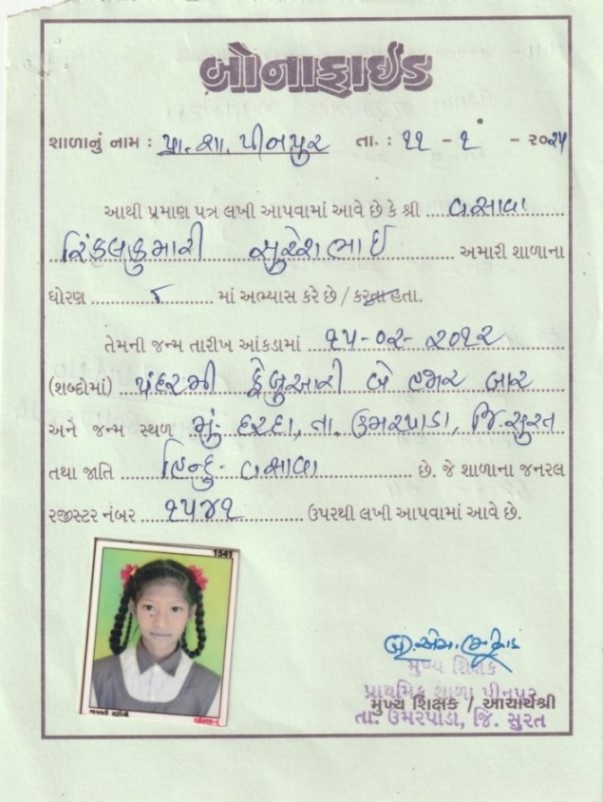 બોનાફાઈડ
શાળાનું નામ : પ્રા. શા. પીનપુર તા. : ૧૧ - ૧ - ૨૦૨૫
આથી પ્રમાણ પત્ર લખી આપવામાં આવે છે કે શ્રી વસાવા
રિંકલકુમારી સુરેશભાઈ અમારી શાળાના
ધોરણ ૮ માં અભ્યાસ કરે છે / કરતા હતા.
તેમની જન્મ તારીખ આંકડામાં ૧૫-૦૨-૨૦૧૨
(શબ્દોમાં) પંદરમી ફેબ્રુઆરી બે હજાર બાર
અને જન્મ સ્થળ મું. હરદા, તા. ઉમરપાડા, જિ. સુરત
તથા જાતિ હિન્દુ- વસાવા છે. જે શાળાના જનરલ
રજીસ્ટર નંબર ૧૫૪૧ ઉપરથી લખી આપવામાં આવે છે.
1541
મુખ્ય શિક્ષક
પ્રાથમિક શાળા પીનપુર
મુખ્ય શિક્ષક / આચાર્યશ્રી
તા. ઉમરપાડા, જિ. સુરત